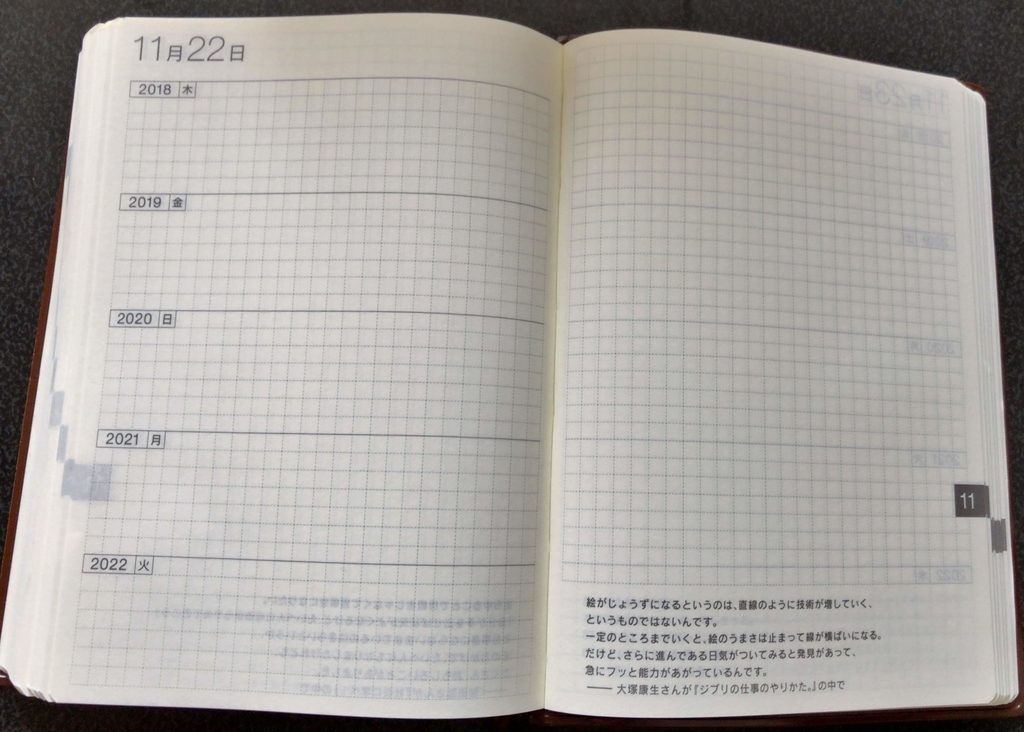 11月22日
2018 木
2019 金
2020 日
2021 月
2022 火
11
絵がじょうずになるというのは、直線のように技術が増していく、
というものではないんです。
一定のところまでいくと、絵のうまさは止まって線が横ばいになる。
だけど、さらに進んである日気がついてみると発見があって、
急にフッと能力があがっているんです。
―― 大塚康生さんが『ジブリの仕事のやりかた。』の中で